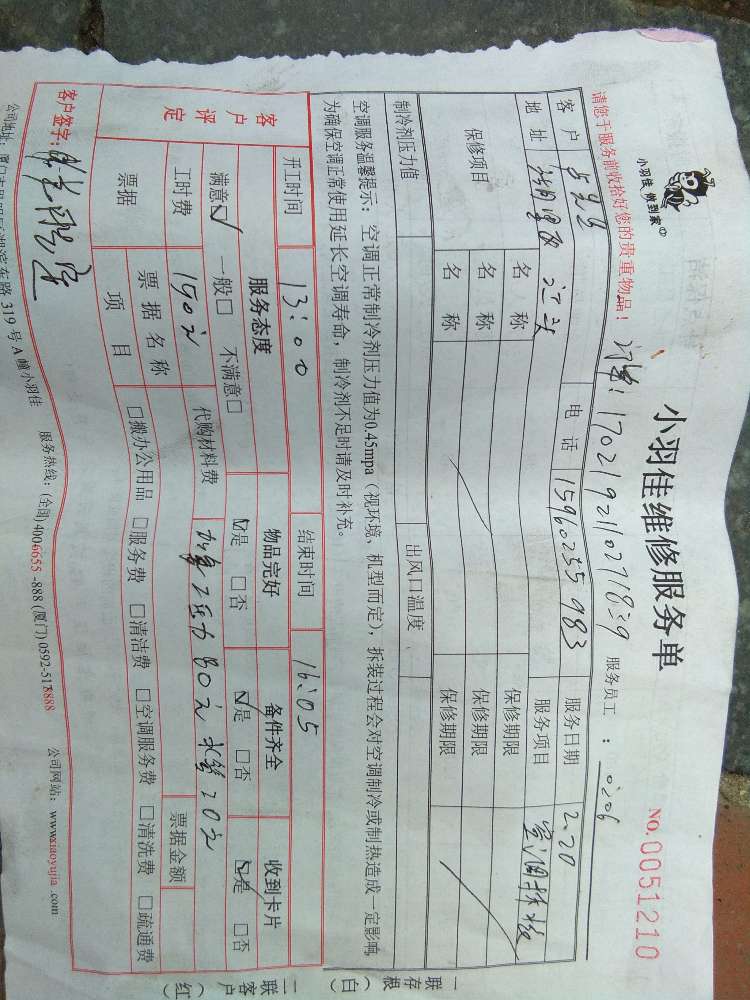 小羽佳 做到家
小羽佳维修服务单
NO. 0051210
请您于服务前收拾好您的贵重物品！
服务员工：
客户
电话 15960255983
服务日期 2.20
地址
服务项目 空调拆装
保修项目
名称
保修期限
名称
保修期限
名称
保修期限
制冷剂压力值
出风口温度
空调服务温馨提示：空调正常制冷剂压力值为0.45mpa（视环境、机型而定），拆装过程会对空调制冷或制热造成一定影响
为确保空调正常使用延长空调寿命，制冷剂不足时请及时补充。
开工时间 13:00
结束时间 16:05
客户评定
服务态度
物品完好
备件齐全
收到卡片
满意☑ 一般□ 不满意□
☑是 □否
☑是 □否
☑是 □否
工时费 150元
代购材料费 压力80元 水管20元
票据
票据名称
票据金额
项目
□搬办公用品 □服务费 □清洁费 □空调服务费 □清洗费 □疏通费
客户签字：
路319号A幢小羽佳 服务热线：(全国)400-6655-888 (厦门)0592-5178888 公司网站：www.xiaoyujia.com
一联存根（白）
二联客户（红）